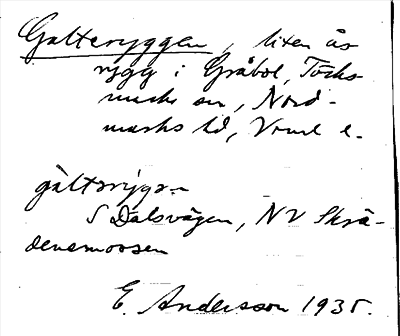 Galteryggen, liten ås
rygg i Gråbol, Töcks
marks sn, Nord-
marks hd, Vrml l.
gàltərygə.n
S Dalsvägen, NV Skrä-
denemossen
E. Andersson 1935.